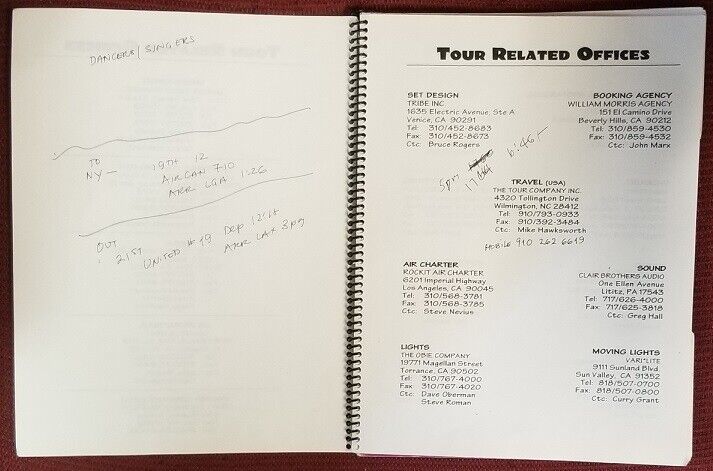 DANCERS/SINGERS
TO
NY — 19TH 12
AIRCAN 710
ARR LGA 1:26
OUT
21ST UNITED #19 DEP 12:14
ARR LAX 3 pg
TOUR RELATED OFFICES
SET DESIGN
TRIBE INC
1635 Electric Avenue, Ste A
Venice, CA 90291
Tel: 310/452-8683
Fax: 310/452-8673
Ctc: Bruce Rogers
BOOKING AGENCY
WILLIAM MORRIS AGENCY
151 El Camino Drive
Beverly Hills, CA 90212
Tel: 310/859-4530
Fax: 310/859-4532
Ctc: John Marx
TRAVEL (USA)
THE TOUR COMPANY INC.
4320 Tollington Drive
Wilmington, NC 28412
Tel: 910/793-0933
Fax: 910/392-3484
Ctc: Mike Hawksworth
MOBILE 910 262 6619
AIR CHARTER
ROCKIT AIR CHARTER
6201 Imperial Highway
Los Angeles, CA 90045
Tel: 310/568-3781
Fax: 310/568-3785
Ctc: Steve Nevius
SOUND
CLAIR BROTHERS AUDIO
One Ellen Avenue
Lititz, PA 17543
Tel: 717/626-4000
Fax: 717/625-3818
Ctc: Greg Hall
LIGHTS
THE OBIE COMPANY
19771 Magellan Street
Torrance, CA 90502
Tel: 310/767-4000
Fax: 310/767-4020
Ctc: Dave Oberman
Steve Roman
MOVING LIGHTS
VARI*LITE
9111 Sunland Blvd.
Sun Valley, CA 91352
Tel: 818/507-0700
Fax: 818/507-0800
Ctc: Curry Grant